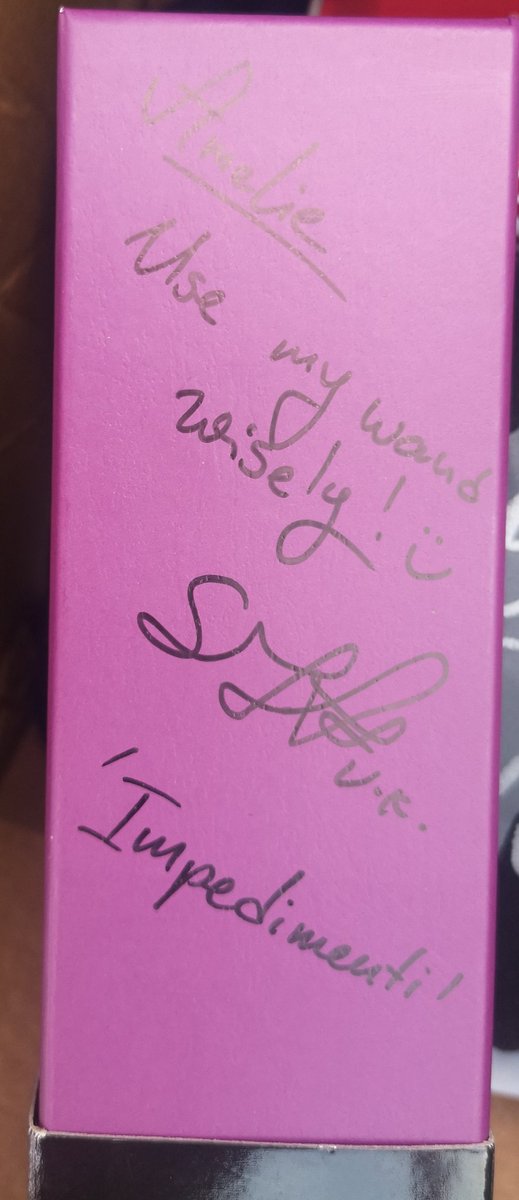 Amelie
Use my wand
wisely! :)
V.K.
'Impedimenti'